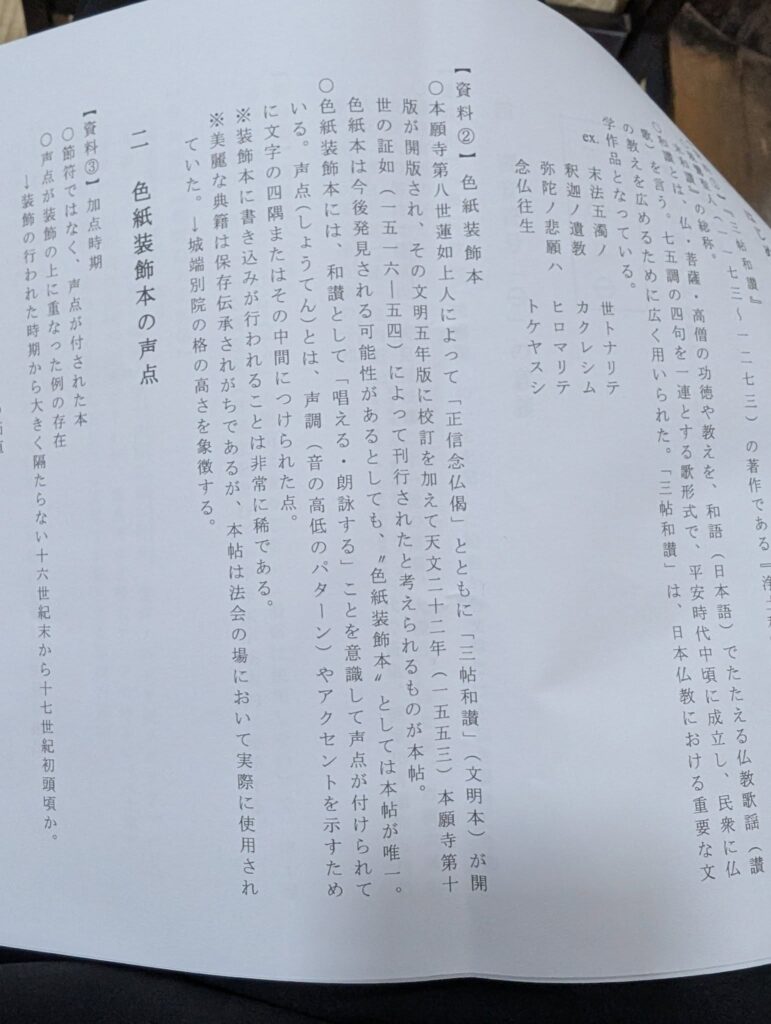 『三帖和讃』
(一一七三～一二七三)の著作である『浄土和
の総称。
○和讃とは、仏・菩薩・高僧の功徳や教えを、和語(日本語)でたたえる仏教歌謡(讃
歌)を言う。七五調の四句を一連とする歌形式で、平安時代中頃に成立し、民衆に仏
の教えを広めるために広く用いられた。「三帖和讃」は、日本仏教における重要な文
学作品となっている。
ex. 末法五濁ノ 世トナリテ
釈迦ノ遺教 カクレシム
弥陀ノ悲願ハ ヒロマリテ
念仏往生 トケヤスシ
【資料②】色紙装飾本
○本願寺第八世蓮如上人によって「正信念仏偈」とともに「三帖和讃」(文明本)が開
版が開版され、その文明五年版に校訂を加えて天文二十二年(一五五三)本願寺第十
世の証如(一五一六―五四)によって刊行されたと考えられるものが本帖。
色紙本は今後発見される可能性があるとしても、〝色紙装飾本〟としては本帖が唯一。
○色紙装飾本には、和讃として「唱える・朗詠する」ことを意識して声点が付けられて
いる。声点(しょうてん)とは、声調(音の高低のパターン)やアクセントを示すため
に文字の四隅またはその中間につけられた点。
※装飾本に書き込みが行われることは非常に稀である。
※美麗な典籍は保存伝承されがちであるが、本帖は法会の場において実際に使用され
ていた。→城端別院の格の高さを象徴する。
二 色紙装飾本の声点
【資料③】加点時期
○節符ではなく、声点が付された本
○声点が装飾の上に重なった例の存在
→装飾の行われた時期から大きく隔たらない十六世紀末から十七世紀初頭頃か。